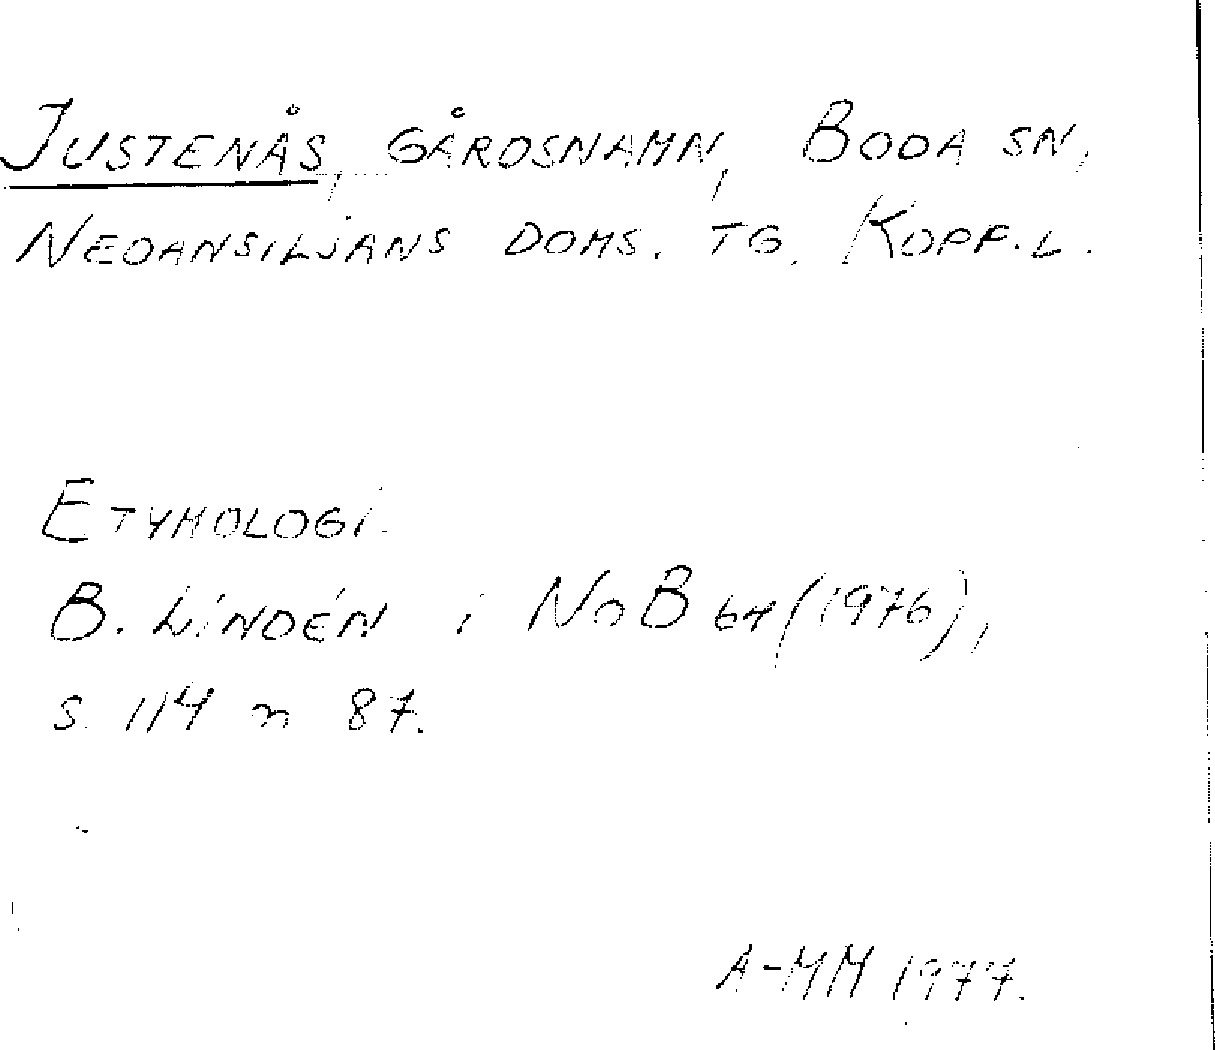 JUSTENÅS, GÅRDSNAMN, BODA SN,
NEDANSILJANS DOMS. TG. KOPP.L.
ETYMOLOGI.
B. LINDÉN i NoB 64 (1976),
S. 114 n 87.
A-MM 1977.